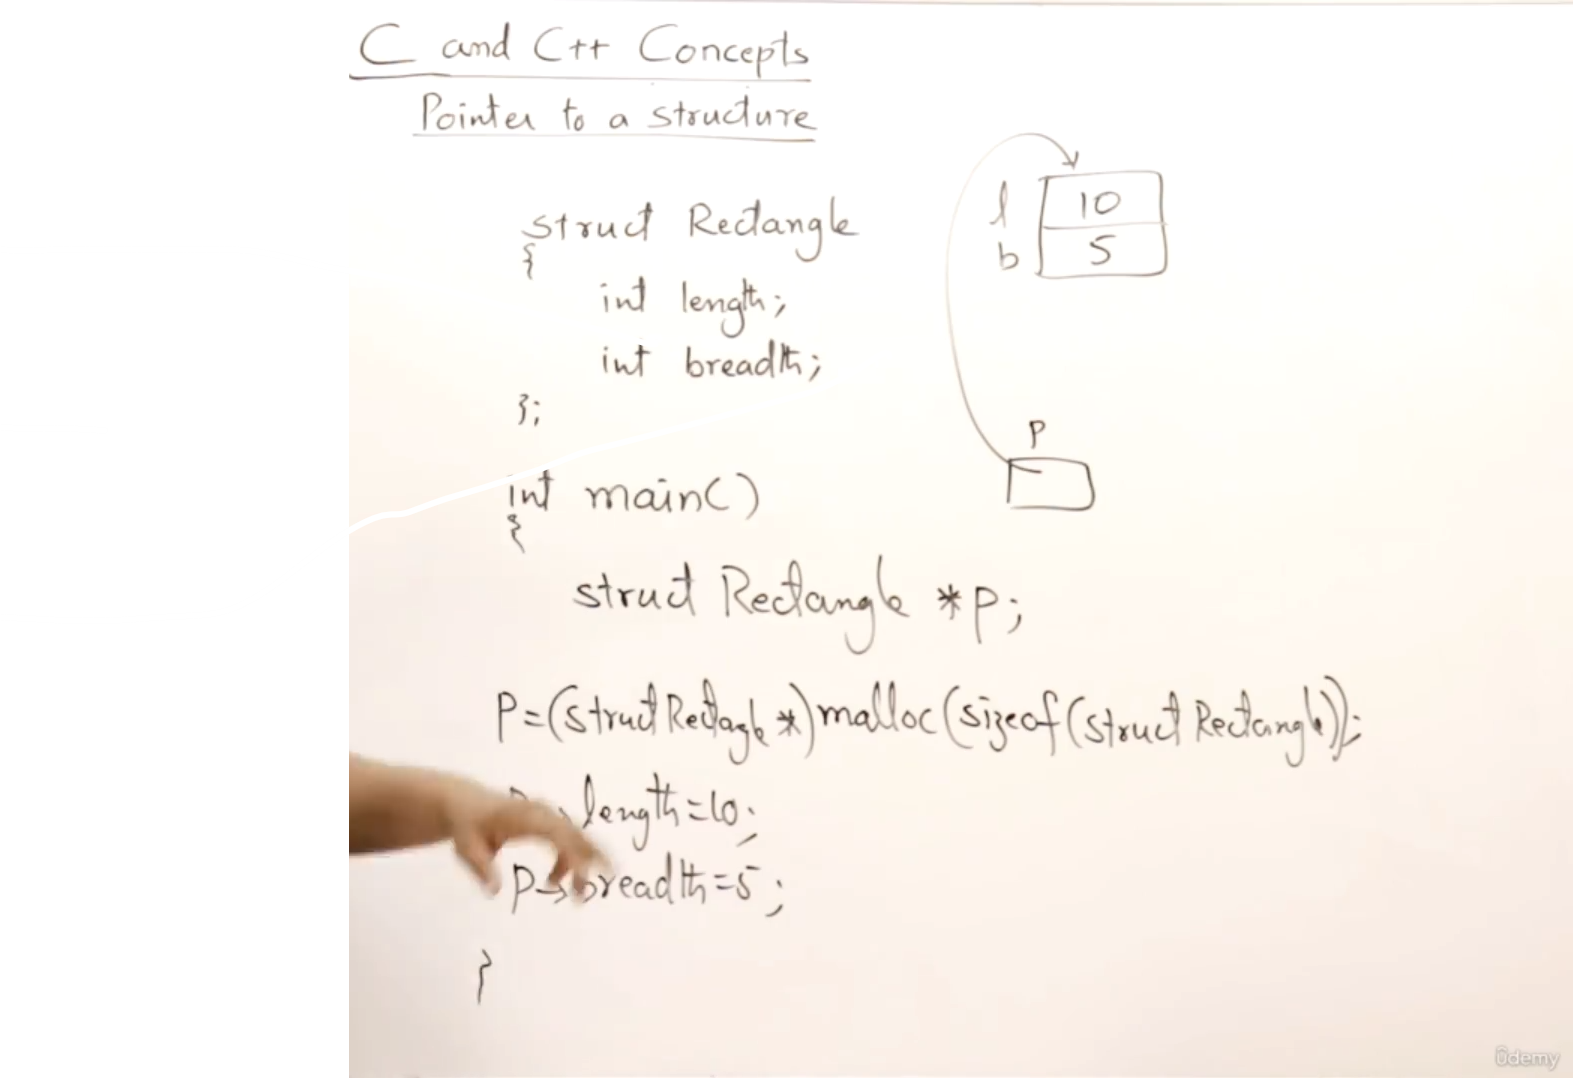 C and C++ Concepts
Pointer to a structure
struct Rectangle
{
int length;
int breadth;
};
int main()
{
struct Rectangle *p;
P=(struct Rectagle *)malloc(sizeof(struct Rectangle));
length=10;
p→breadth=5;
}
l 10
b 5
P
ûdemy